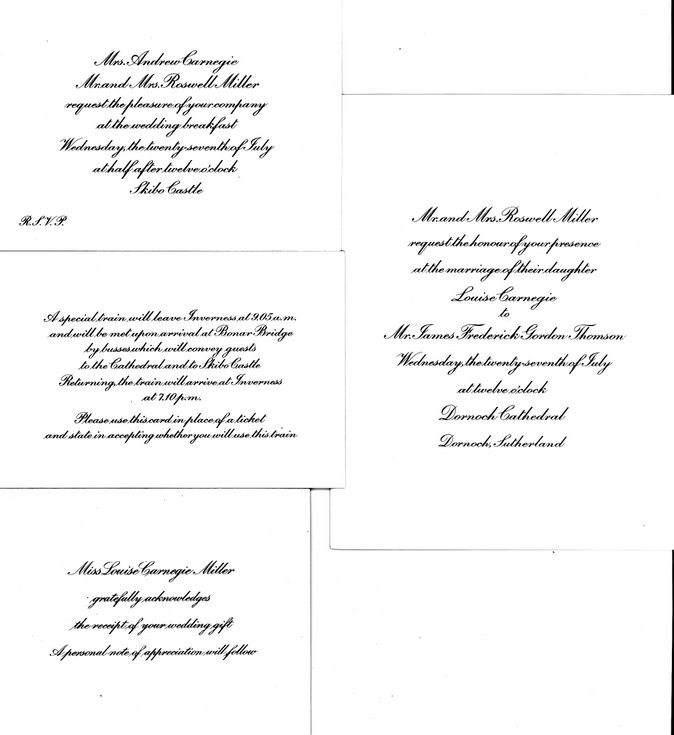 Mrs. Andrew Carnegie
Mr. and Mrs. Roswell Miller
request the pleasure of your company
at the wedding breakfast
Wednesday, the twenty-seventh of July
at half after twelve o'clock
Skibo Castle
R.S.V.P.
A special train will leave Inverness at 9.05 a.m.
and will be met upon arrival at Bonar Bridge
by busses which will convey guests
to the Cathedral and to Skibo Castle
Returning, the train will arrive at Inverness
at 7.10 p.m.
Please use this card in place of a ticket
and state in accepting whether you will use this train
Miss Louise Carnegie Miller
gratefully acknowledges
the receipt of your wedding gift
A personal note of appreciation will follow
Mr. and Mrs. Roswell Miller
request the honour of your presence
at the marriage of their daughter
Louise Carnegie
to
Mr. James Frederick Gordon Thomson
Wednesday, the twenty-seventh of July
at twelve o'clock
Dornoch Cathedral
Dornoch, Sutherland